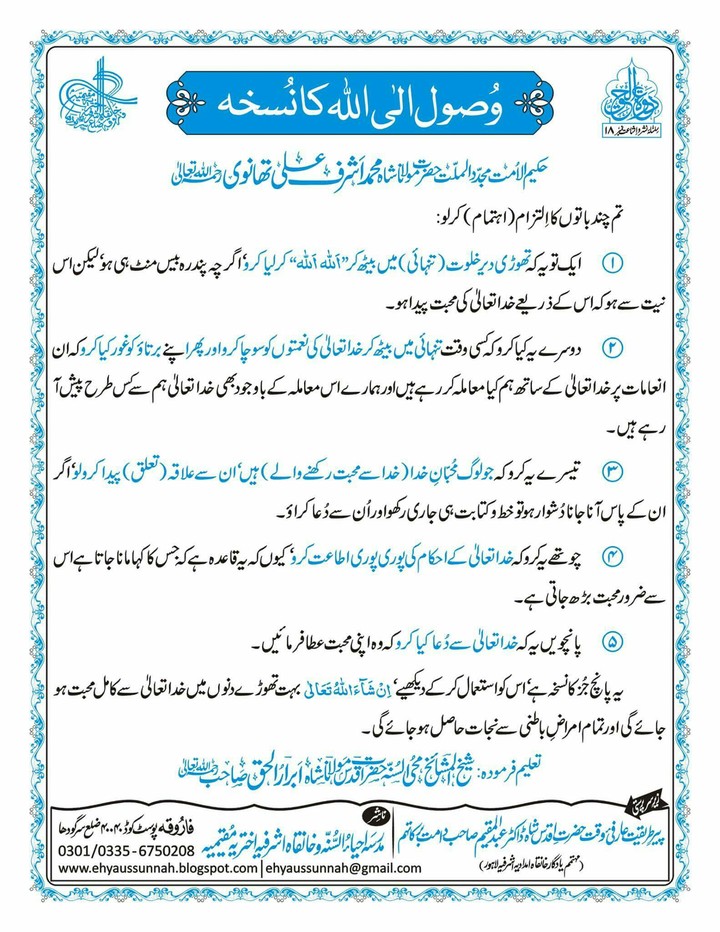 وُصول الی اللہ کا نُسخہ
دعوۃ الحق
سلسلہ نشر و اشاعت نمبر ۱۸
حکیم الاُمت مجدد الملت حضرت مولانا شاہ محمد اشرف علی تھانوی رحمہ اللہ تعالیٰ
تم چند باتوں کا اِلتزام (اہتمام) کرلو:
① ایک تو یہ کہ تھوڑی دیر خلوت (تنہائی) میں بیٹھ کر ”اَللہ اَللہ“ کر لیا کرو‘ اگرچہ پندرہ بیس منٹ ہی ہو‘ لیکن اس
نیت سے ہو کہ اس کے ذریعے خدا تعالیٰ کی محبت پیدا ہو۔
② دوسرے یہ کیا کرو کہ کسی وقت تنہائی میں بیٹھ کر خدا تعالیٰ کی نعمتوں کو سوچا کرو اور پھر اپنے برتاؤ کو غور کیا کرو کہ ان
انعامات پر خدا تعالیٰ کے ساتھ ہم کیا معاملہ کر رہے ہیں اور ہمارے اس معاملہ کے باوجود بھی خدا تعالیٰ ہم سے کس طرح پیش آ
رہے ہیں۔
③ تیسرے یہ کرو کہ جو لوگ مُحبّانِ خدا (خدا سے محبت رکھنے والے) ہیں‘ ان سے علاقہ (تعلق) پیدا کر لو‘ اگر
ان کے پاس آنا جانا دُشوار ہو تو خط و کتابت ہی جاری رکھو اور اُن سے دُعا کراؤ۔
④ چوتھے یہ کرو کہ خدا تعالیٰ کے احکام کی پوری پوری اطاعت کرو‘ کیوں کہ یہ قاعدہ ہے کہ جس کا کہا مانا جاتا ہے اس
سے ضرور محبت بڑھ جاتی ہے۔
⑤ پانچویں یہ کہ خدا تعالیٰ سے دُعا کیا کرو کہ وہ اپنی محبت عطا فرمائیں۔
یہ پانچ جُز کا نسخہ ہے‘ اس کو استعمال کر کے دیکھیے‘ اِنْ شَآءَ اللہُ تَعَالیٰ بہت تھوڑے دنوں میں خدا تعالیٰ سے کامل محبت ہو
جائے گی اور تمام امراضِ باطنی سے نجات حاصل ہو جائے گی۔
تعلیم فرمودہ: شیخ المشائخ محی السنہ حضرت اقدس مولانا شاہ ابرار الحق صاحب رحمہ اللہ تعالیٰ
پیر طریقت عارفِ وقت حضرت اقدس شاہ ڈاکٹر عبد المقیم صاحب دامت برکاتہم
(مہتمم یادگار خانقاہ امدادیہ اشرفیہ لاہور)
ناشر
مدرسہ احیاءُ السنّہ و خانقاہ اشرفیہ اختریہ مقیمیہ
فارُوقہ پوسٹ کوڈ ۴۰۰۴۰ ضلع سرگودھا
0301/0335-6750208
www.ehyaussunnah.blogspot.com | ehyaussunnah@gmail.com